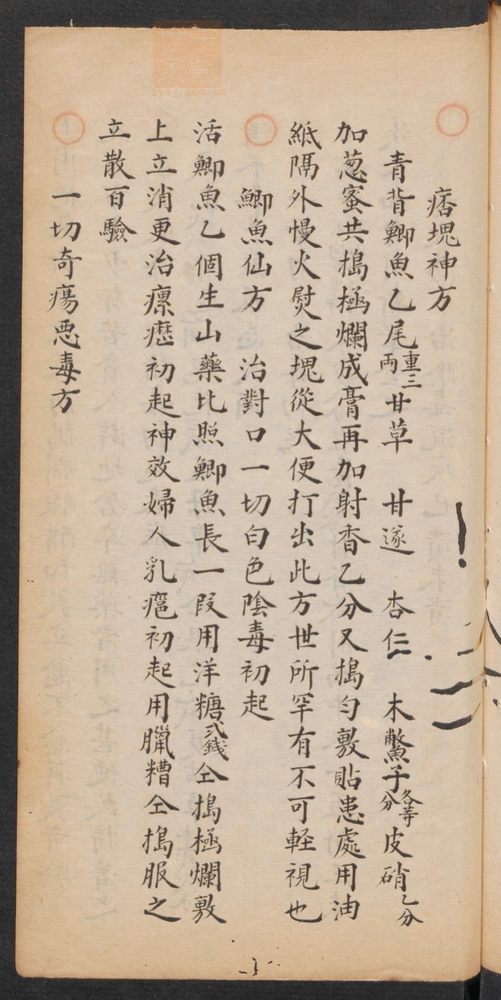 痞塊神方
青背鯽魚乙尾重三兩甘草 甘遂 杏仁 木鱉子各等分皮硝乙分
加葱蜜共搗極爛成膏再加射香乙分又搗匀敷貼患處用油
紙隔外慢火熨之塊從大便打出此方世所罕有不可軽視也
鯽魚仙方 治對口一切白色陰毒初起
活鯽魚乙個生山藥比照鯽魚長一段用洋糖弍錢仝搗極爛敷
上立消更治瘰癧初起神效婦人乳癰初起用臘糟仝搗服之
立散百驗
一切奇瘍悪毒方